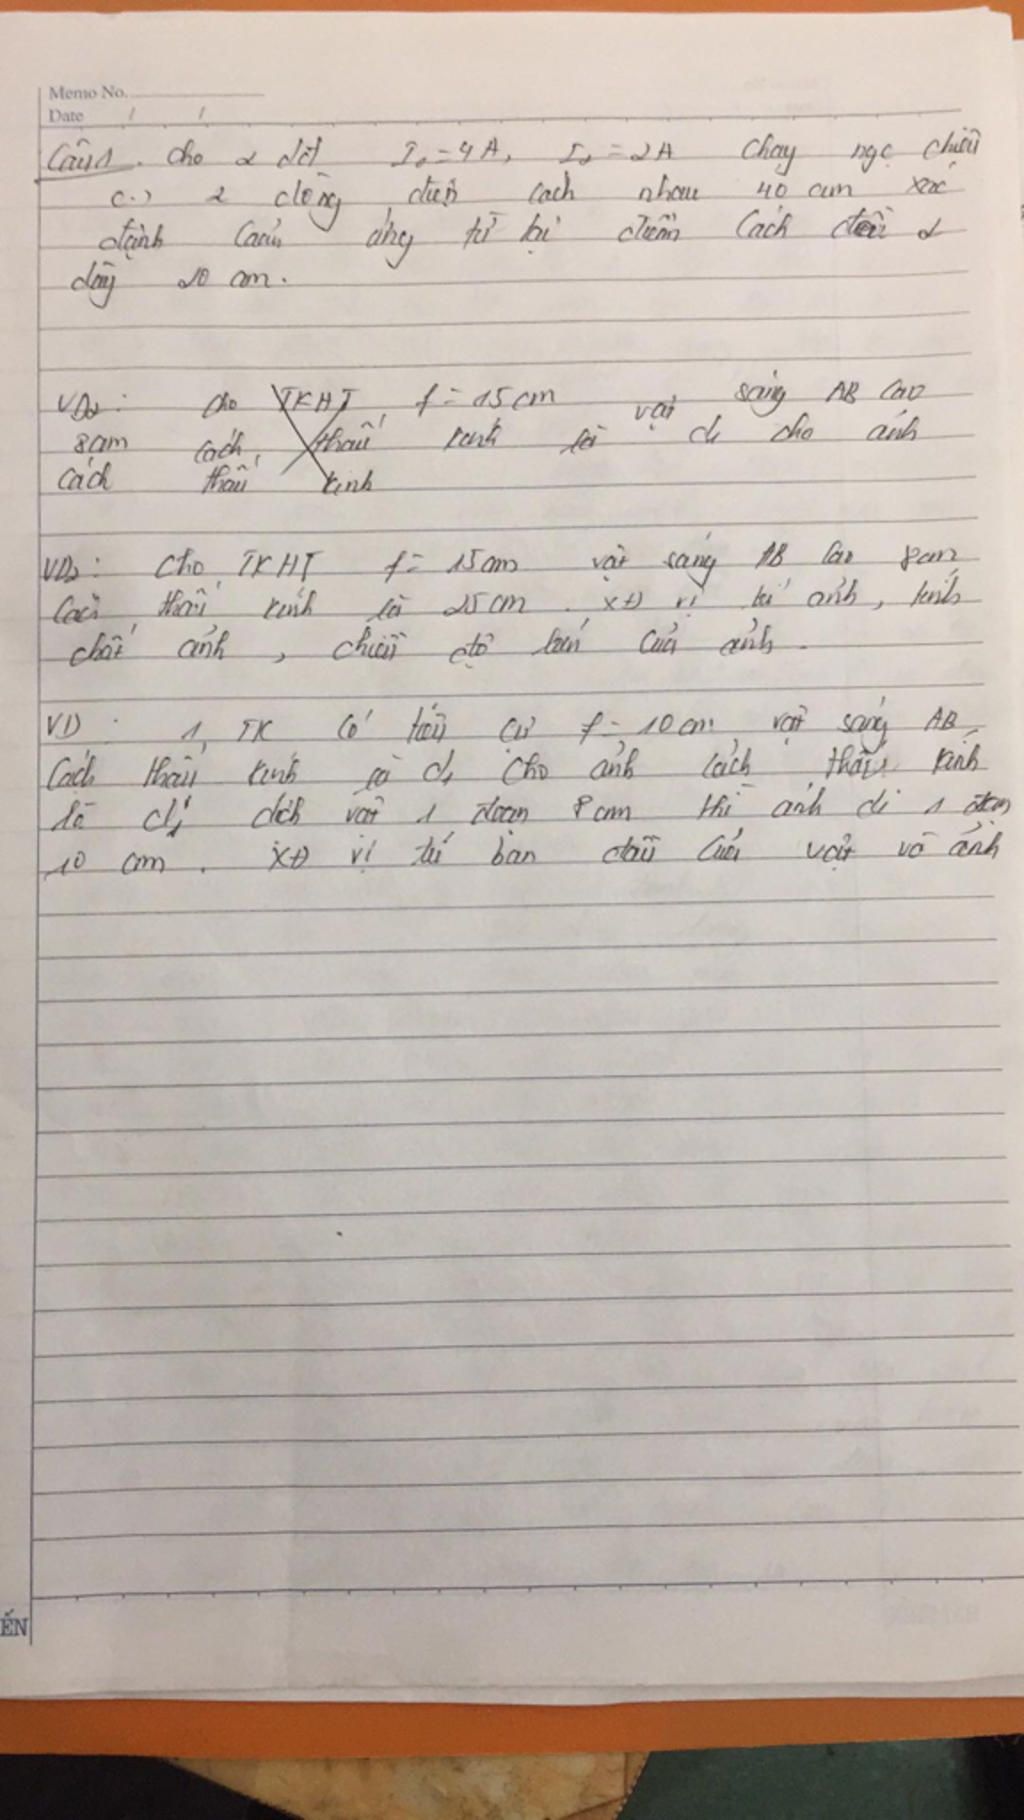 Memo No.
Date / /
Câu 1. Cho 2 dây I₁ = 4A, I₂ = 2A chạy ngc chiều
2 dòng điện cách nhau 40 cm xác
định Cảm ứng từ tại điểm Cách đều 2
dây 20 cm.
VD2: Cho TKHT, f = 15cm vật sáng AB Cao
8cm cách thấu kính là d₁ cho ảnh
Cách thấu kính
VD2: Cho TKHT f = 15cm vật sáng AB Cao 8cm
Cách thấu kính là 25cm. XĐ vị trí ảnh, tính
chất ảnh, chiều độ lớn Của ảnh.
VD: 1 TK Có tiêu cự f = 10cm, vật sáng AB
Cách thấu kính là d₁ Cho ảnh cách thấu kính
là d₁' dịch vật 1 đoạn 8cm thì ảnh di 1 đoạn
10 cm. XĐ vị trí ban đầu Của vật và ảnh
ẾN